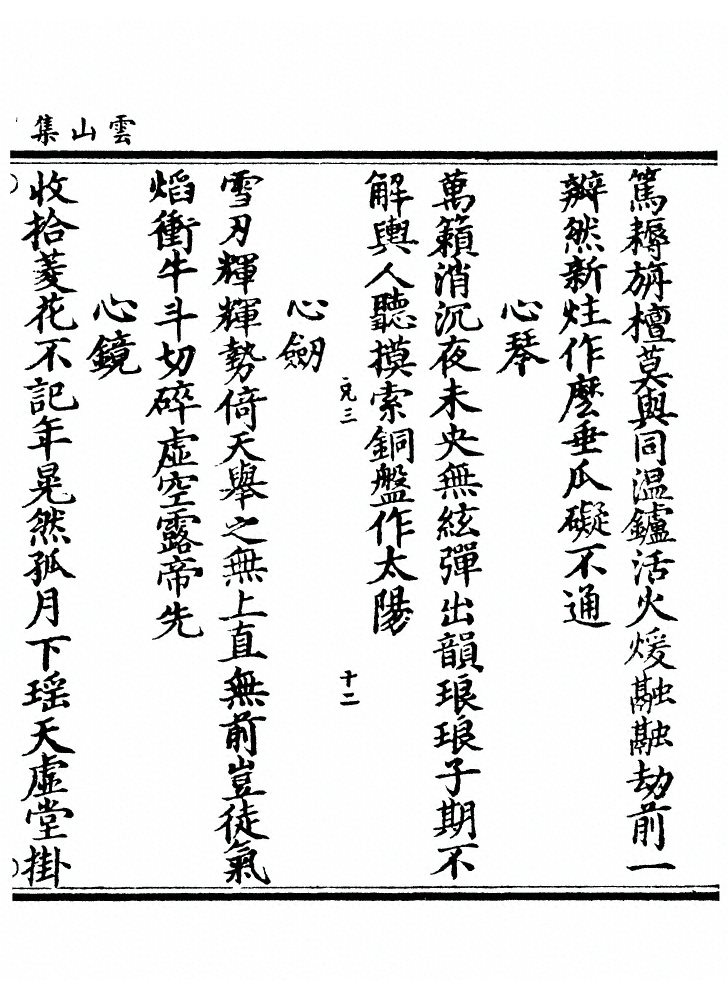 雲山集
篤耨旃檀莫與同温鑪活火煖融融劫前一
瓣然新炷作麽垂瓜礙不通
心琴
萬籟消沉夜未央無絃彈出韻琅琅子期不
解與人聽摸索銅盤作太陽
兑三
十二
心劒
雪刃輝輝勢倚天舉之無上直無前豈徒氣
焰衝牛斗切碎虛空露帝先
心鏡
收拾菱花不記年晃然孤月下瑶天虛堂掛